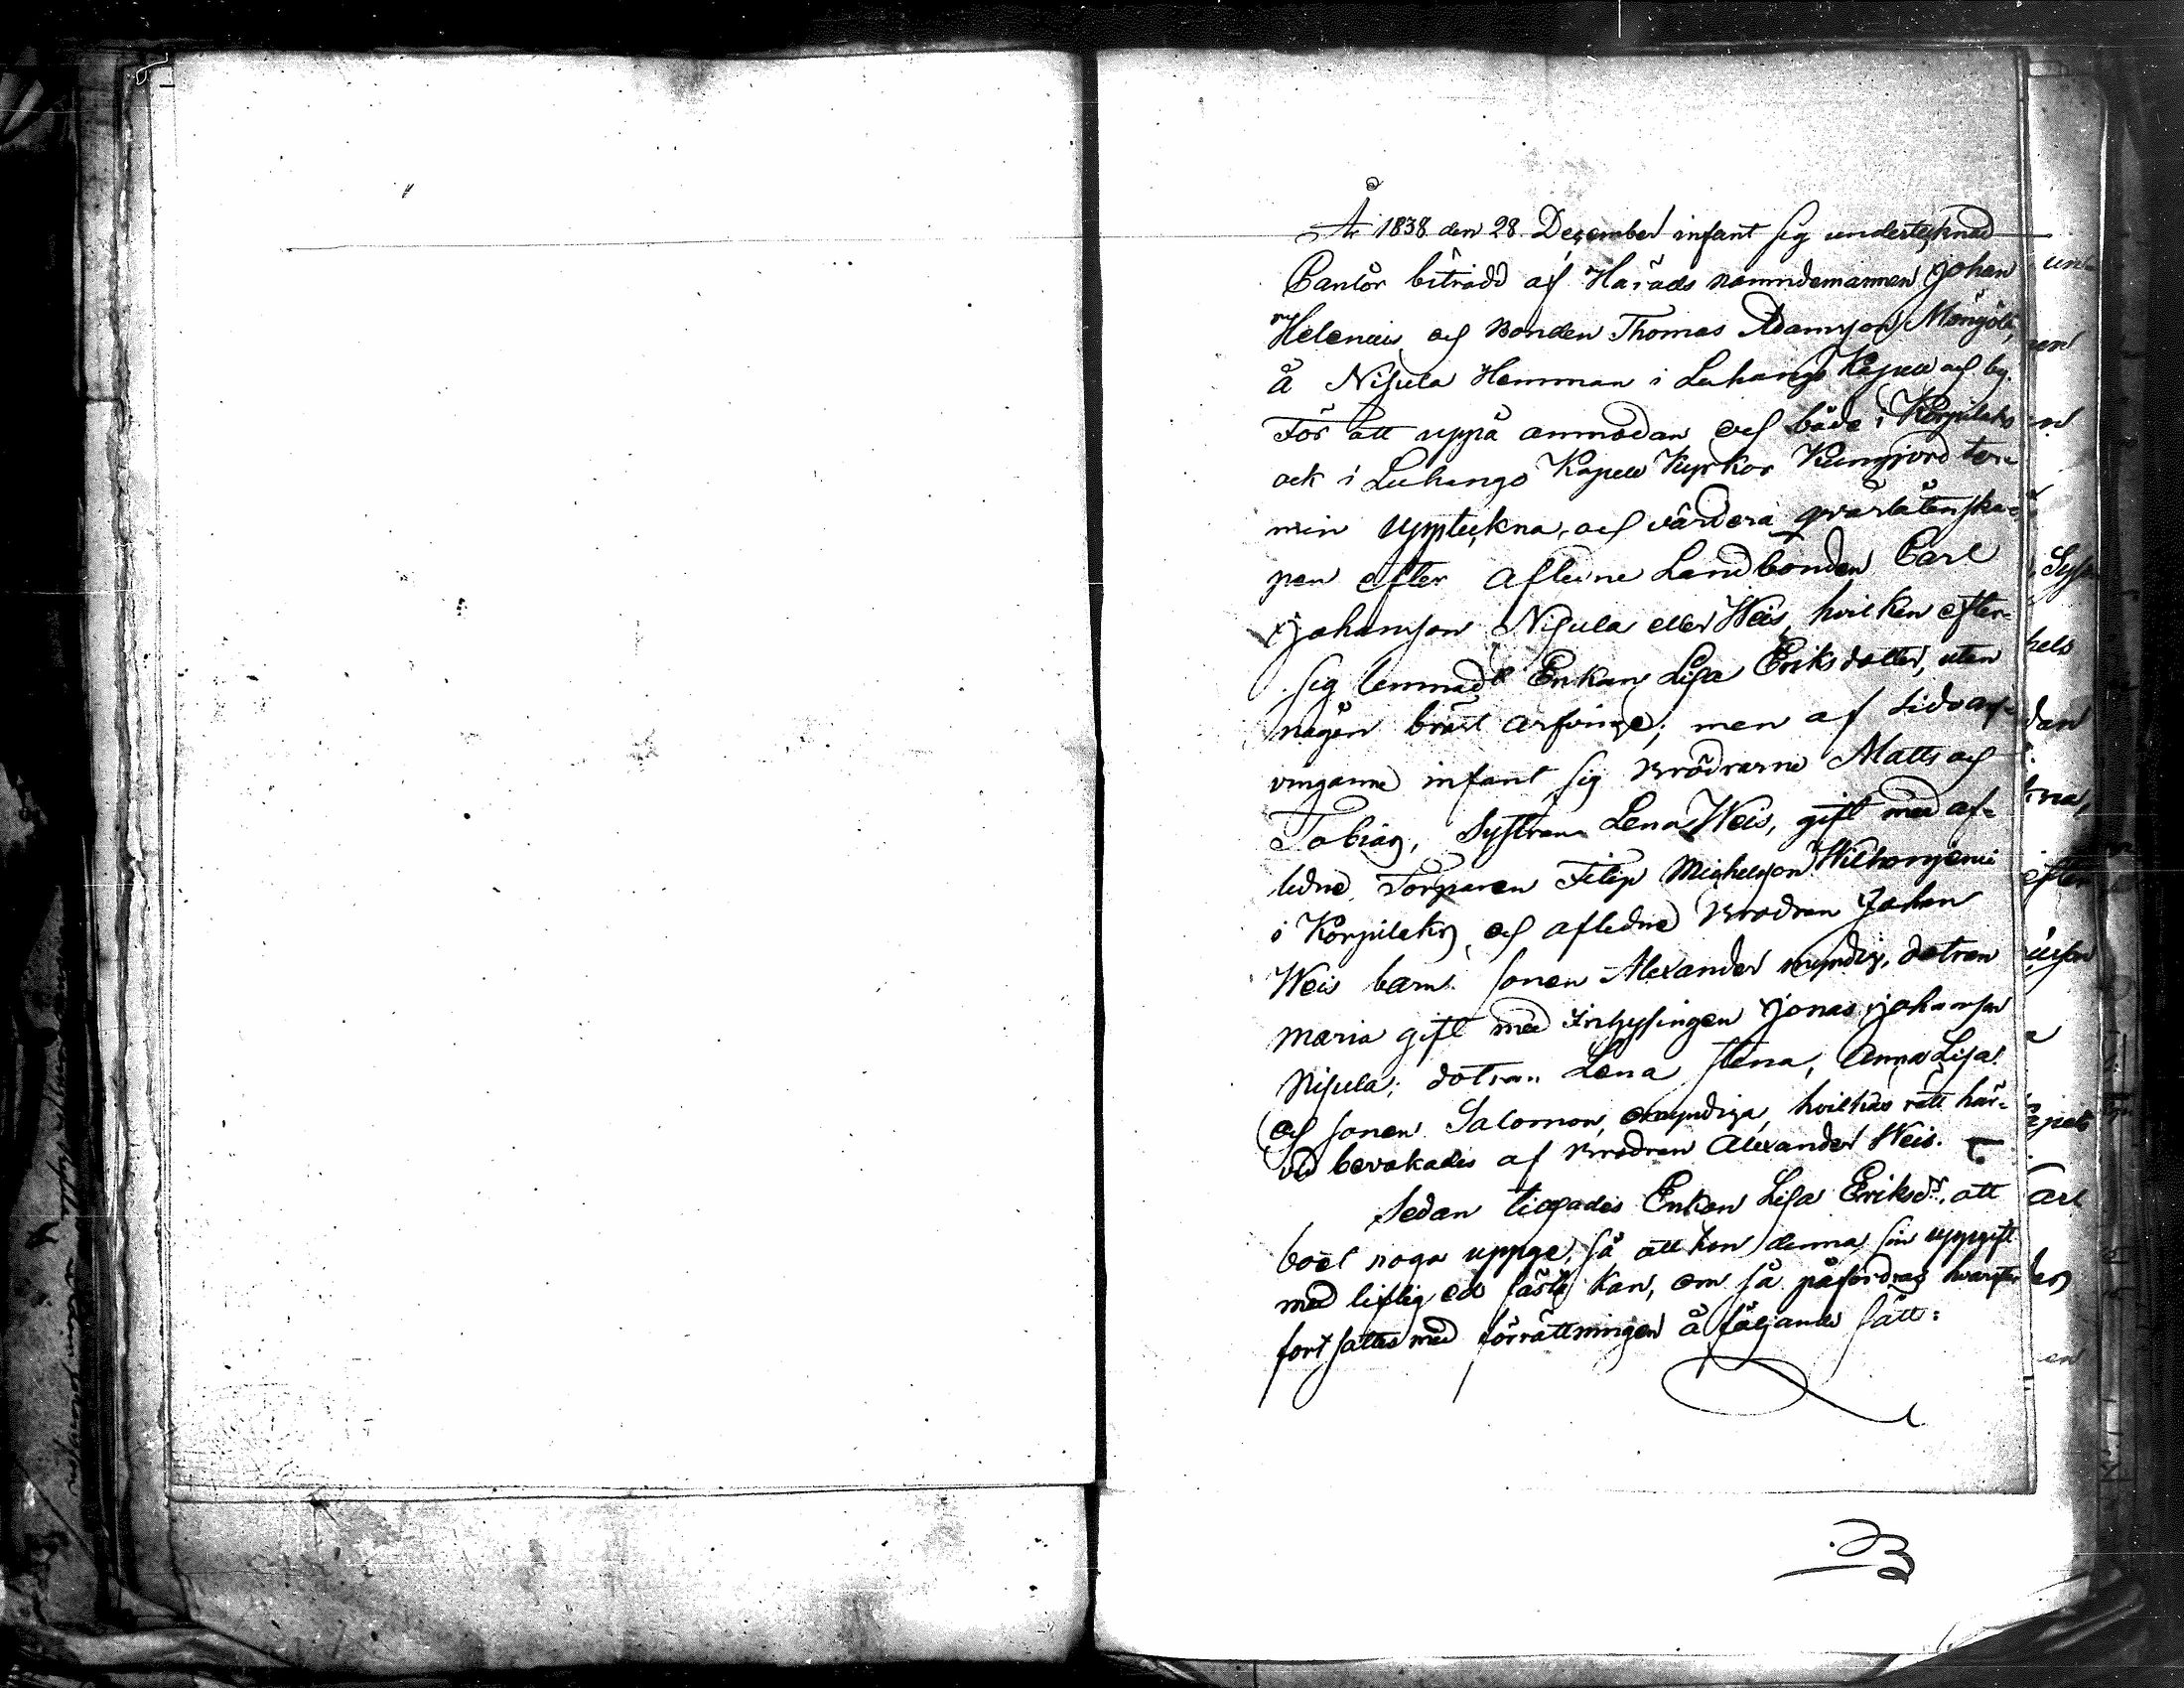 År 1838 den 28 December infant sig undertecknad
Cantor biträdd af Härads nämndemannen Johan
Helenius och Bonden Thomas Adamsson Mongola,
å Nisula Hemman i Luhango Kapell och by.
För att uppå anmodan och både i Korpilaks
ock i Luhango Kapell Kyrkor Kungjord ter-
min upptekna, och värdera qvarlåtenska-
pen efter aflidne Landbonden Carl
Johansson Nisula eller Weis, hvilken efter
sig lemnade Enkan Lisa Eriksdotter, utan
någon bröst arfvinge; men af sidoarf-
vingarne infant sig Bröderne Matts och
Tobias, Systran Lena Weis, gift med af-
lidne Torparen Filip Michelsson Wilhonjemi
i Korpilaks, och aflidne Brodren Johan
Weis barn. sonen Alexander myndig, dotren
Maria gift med Inhysingen Jonas Johansson
Nisula; dotren Lena Stena, Anna Lisa
och sonen Salomon, omyndiga, hvilkas rätt här-
vid bevakades af Brodren Alexander Weis.
Sedan tillsades Enkan Lisa Eriksdr. att
boet noga uppge, så att hon denna sin uppgift
med liflig ed fästa kan, om så påfordras hvarefter
fortsattes med förrättningen å följande sätt: